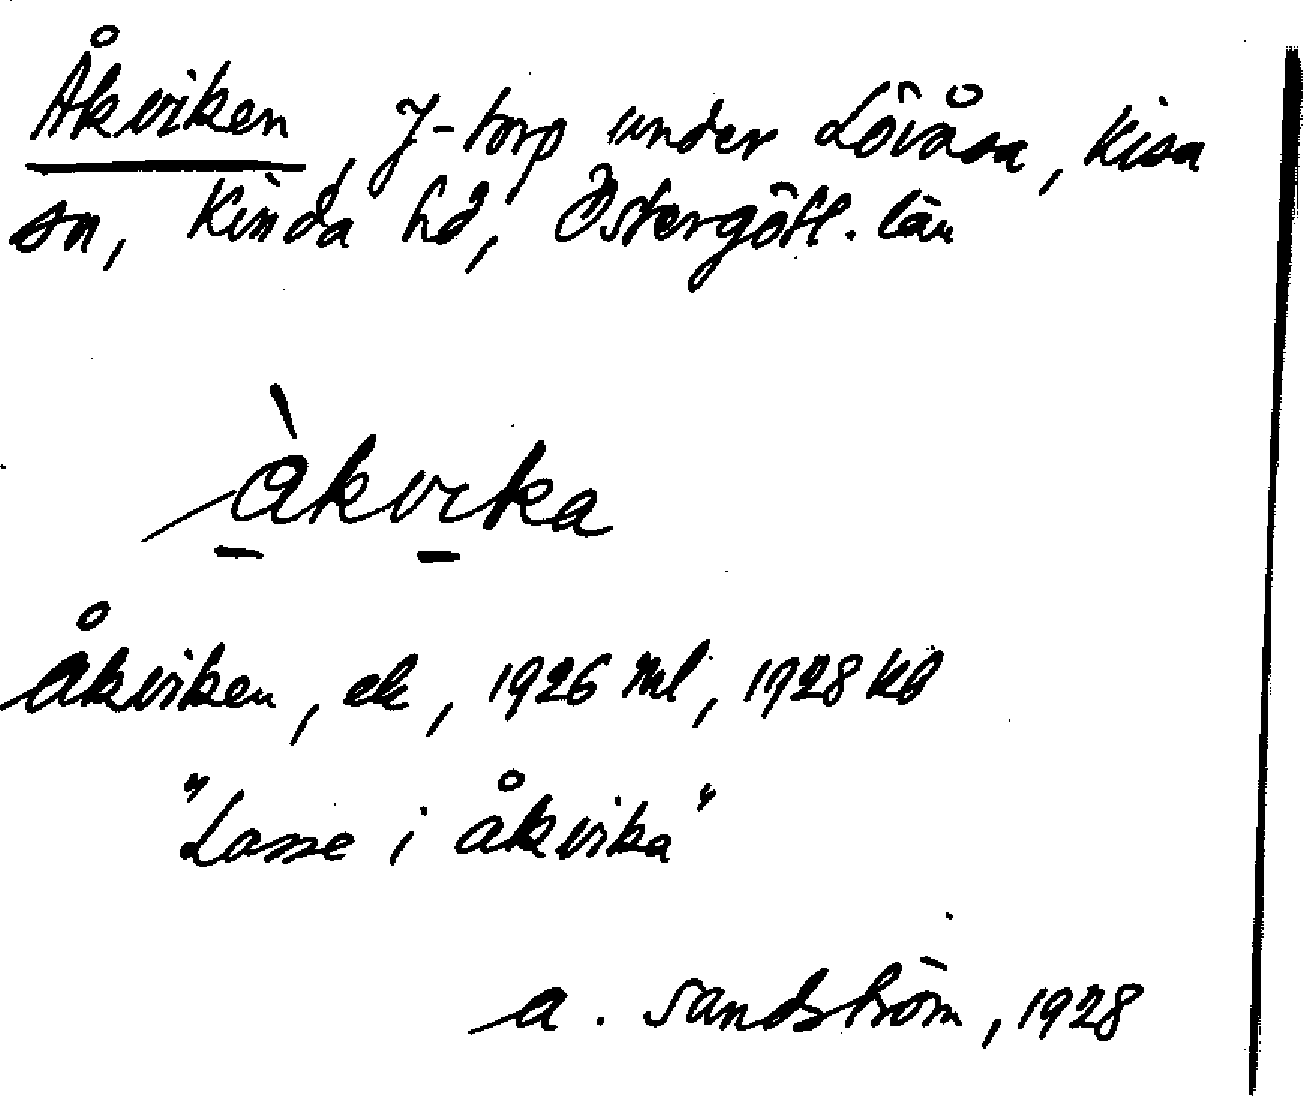 Åkviken, J-torp under Lövåsa, Kisa
sn, Kinda hd, Östergötl. län
àkvika
Åkviken, ek, 1926 Ml, 1928 kb
"Lasse i åkvika"
A. Sandström, 1928